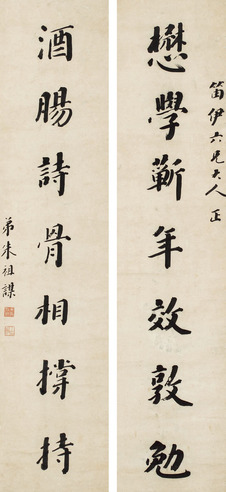 笛伊六兄大人正
懋學蘄年效敦勉
酒腸詩骨相撐持
弟朱祖謀